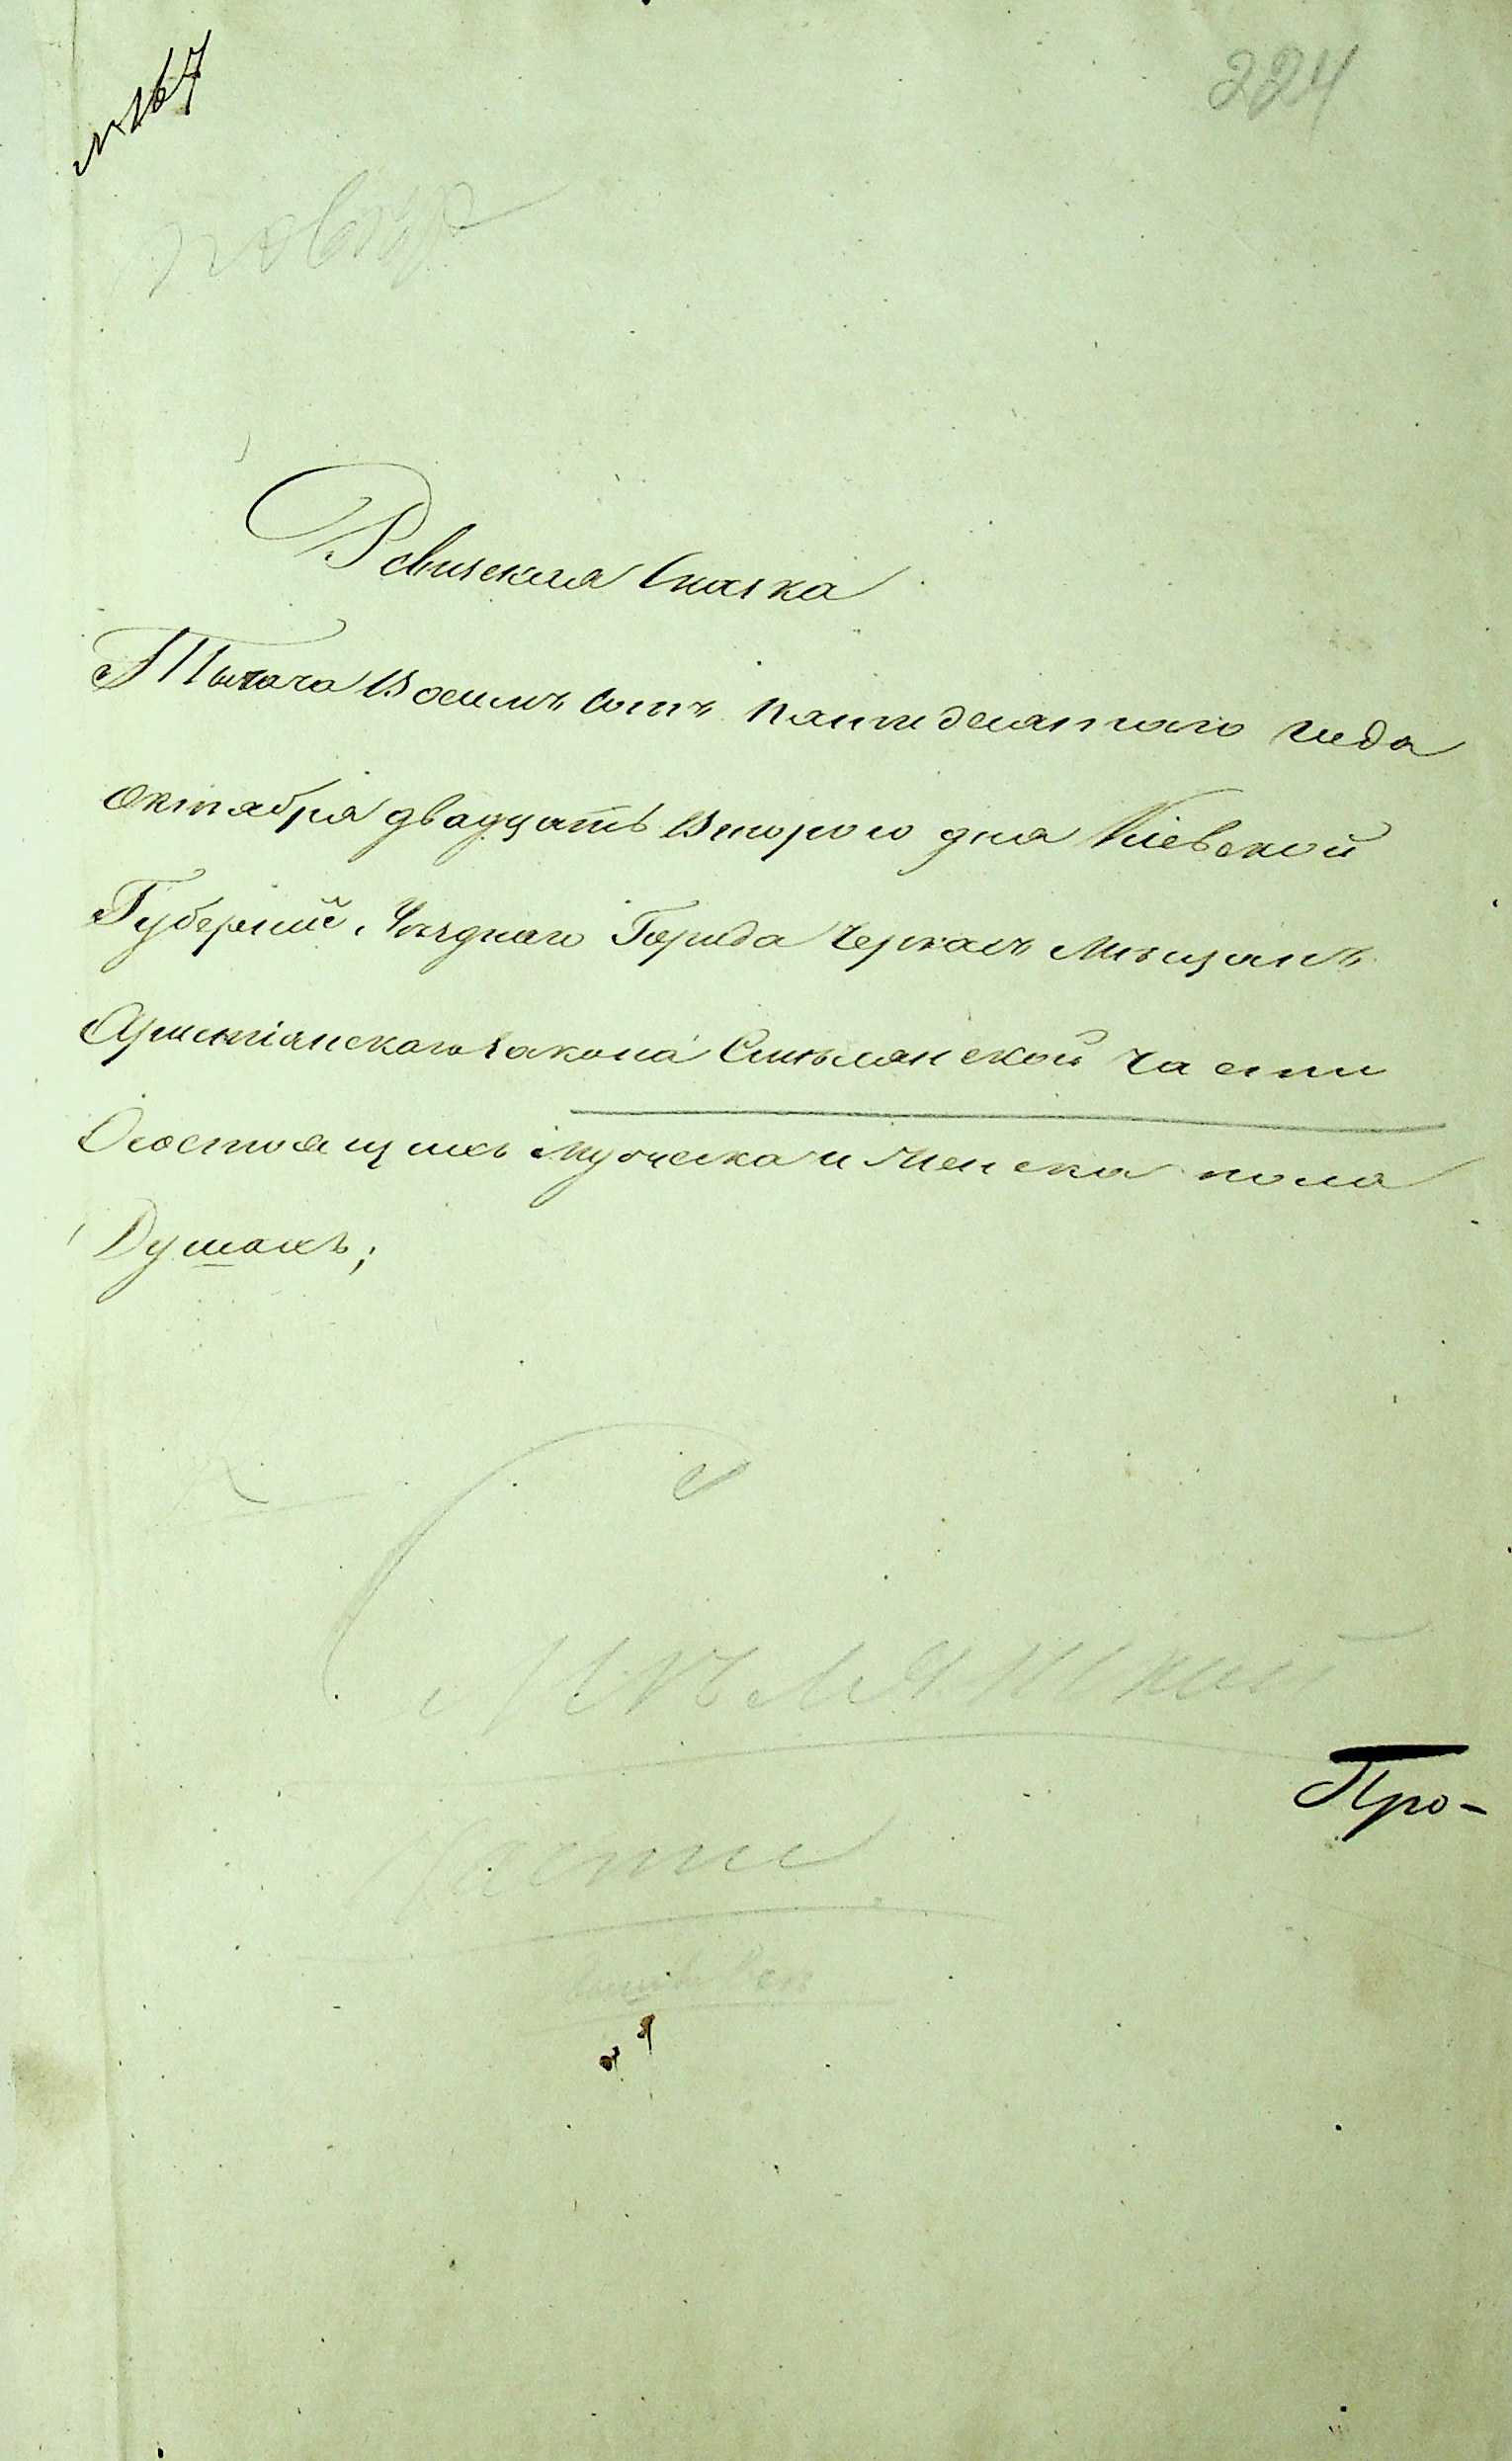 № 167
224
повѣр
Ревизская Сказка
Тысяча Восемъ Сотъ пятидесятаго года
Октября двадцать Втораго дня Кіевской
Губерніи, Уѣзднаго Города Черкасъ Мѣщанъ
Христіянскаго Закона Смѣлянской части
О состоящихъ мужеска и женска пола
Душахъ;
Смѣлянской
Части
Про-